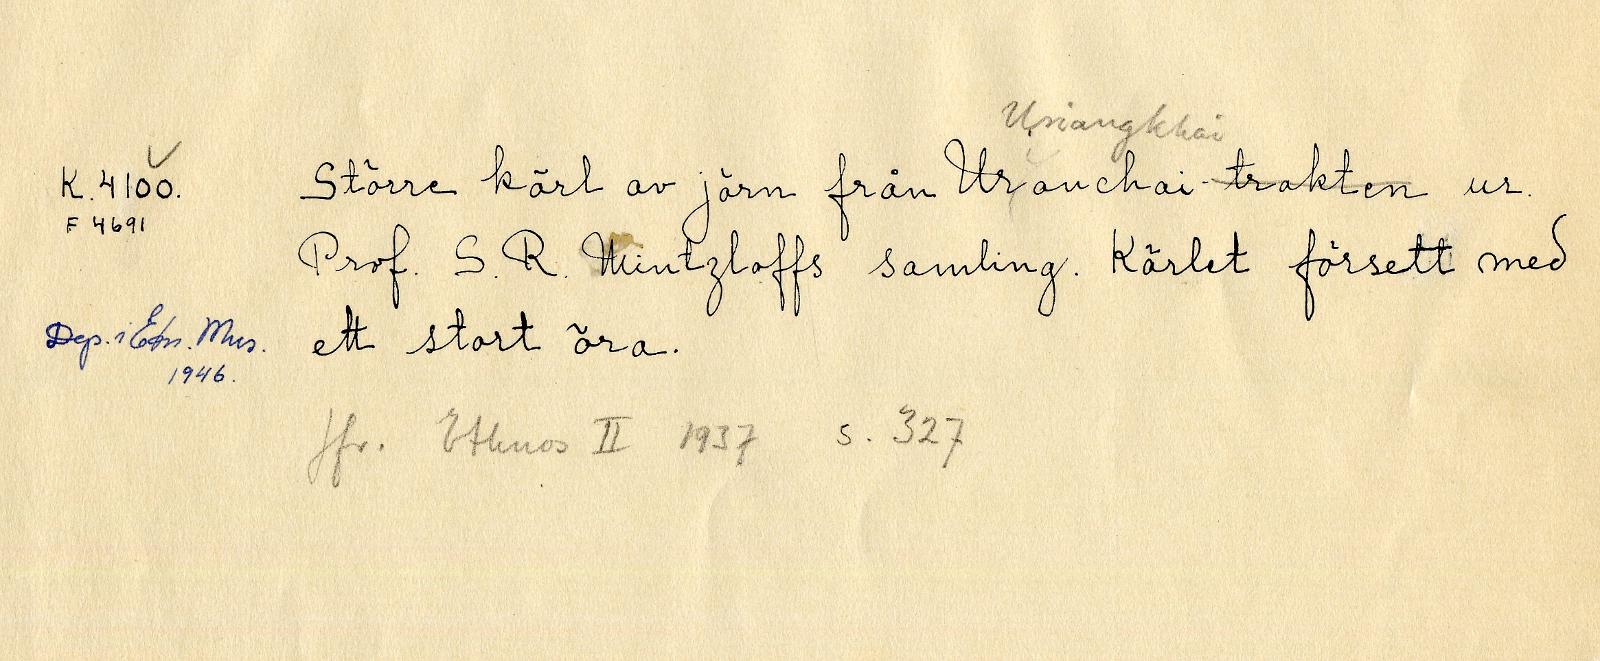 Uriangkhai
K. 4100. Större kärl av järn från Urauchai-trakten ur.
F 4691
Prof. S. R. Mintzloffs samling. Kärlet försett med
Dep. i Etn. Mus. ett stort öra.
1946.
Jfr. Ethnos II 1937 s. 327